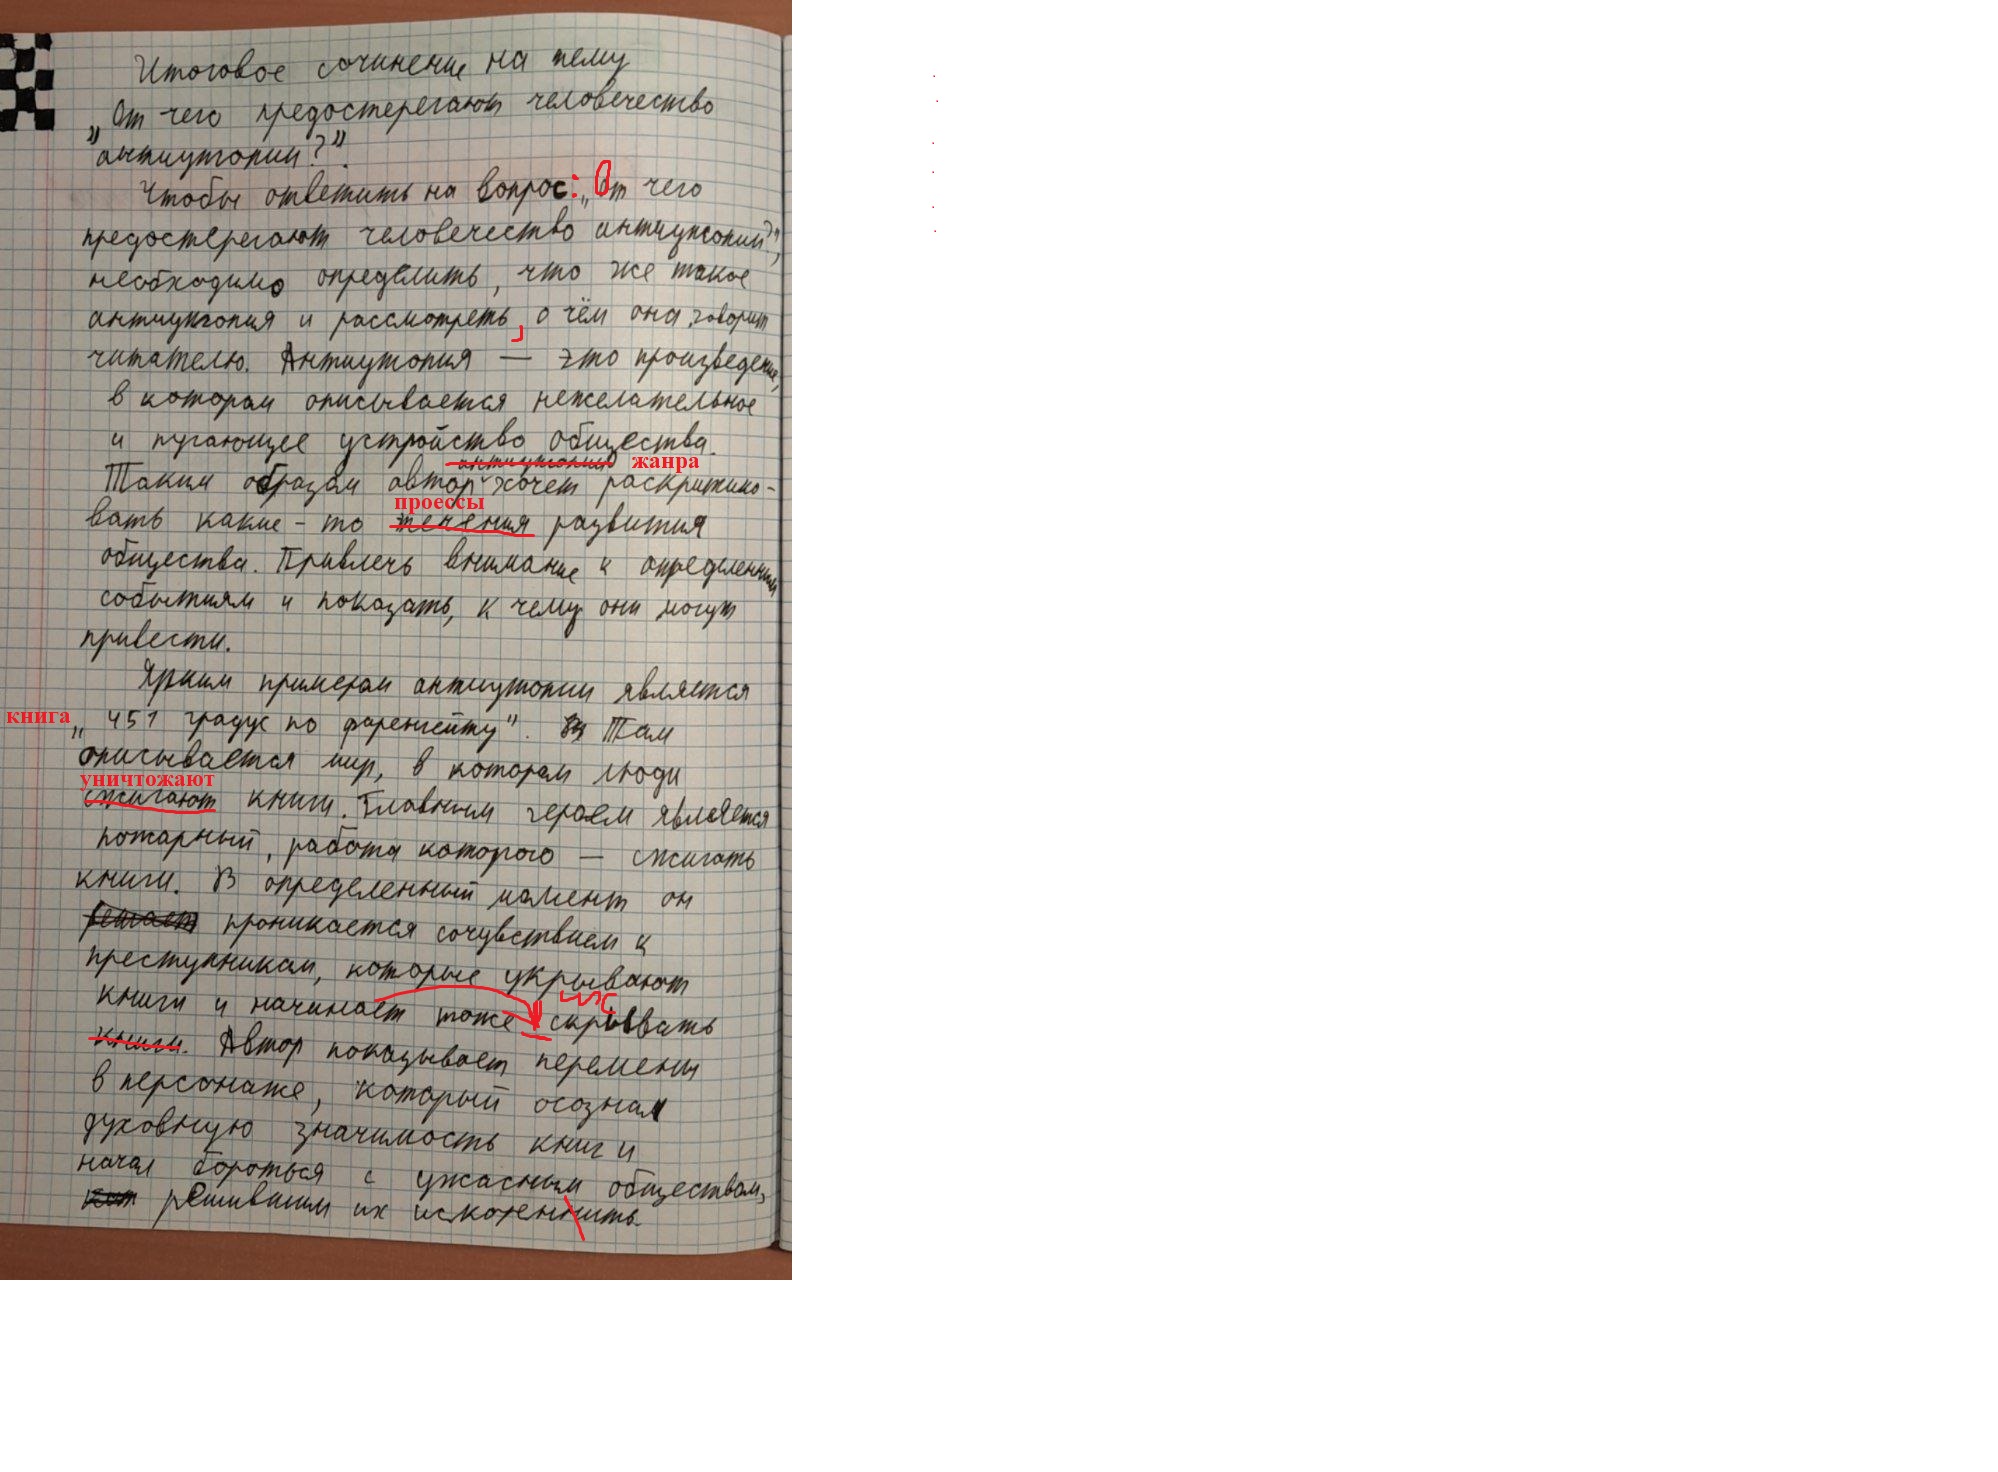 Итоговое сочинение на тему
„От чего предостерегают человечество
антиутопии?".
Чтобы ответить на вопрос: „От чего
предостерегают человечество антиутопии?",
необходимо определить, что же такое
антиутопия и рассмотреть, о чём она говорит
читателю. Антиутопия — это произведение,
в котором описывается нежелательное
и пугающее устройство общества.
антиутопии жанра
Таким образом автор хочет раскритико-
проессы
вать какие-то течения развития
общества. Привлечь внимание к определенным
событиям и показать, к чему они могут
привести.
Ярким примером антиутопии является
книга „451 градус по фаренгейту". Там
описывается мир, в котором люди
уничтожают
сжигают книги. Главным героем является
пожарный, работа которого — сжигать
книги. В определенный момент он
решает проникается сочувствием к
преступникам, которые укрывают
их
книги и начинает тоже скрывать
книги. Автор показывает перемены
в персонаже, который осознал
духовную значимость книг и
начал бороться с ужасным обществом,
решившим их искореннить.